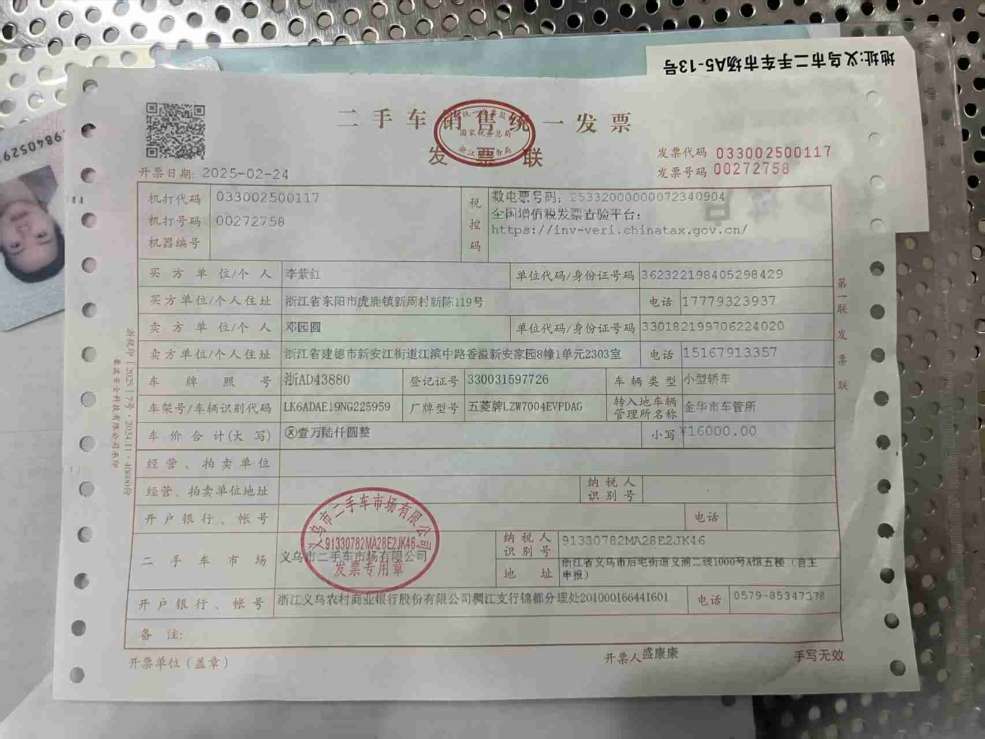 地址:义乌市二手车市场A5-13号
二手车销售统一发票
发票联
国家税务总局
发票代码 033002500117
发票号码 00272758
开票日期: 2025-02-24
机打代码 033002500117
机打号码 00272758
机器编号
税控码
数电票号码: 25332000000072340904
全国增值税发票查验平台:
https://inv-veri.chinatax.gov.cn/
买方单位/个人 李紫红 单位代码/身份证号码 362322198405298429
买方单位/个人住址 浙江省东阳市虎鹿镇新周村新陈119号 电话 17779323937
卖方单位/个人 邓园圆 单位代码/身份证号码 330182199706224020
卖方单位/个人住址 浙江省建德市新安江街道江滨中路香溢新安家园8幢1单元2303室 电话 15167913357
车牌照号 浙AD43880 登记证号 330031597726 车辆类型 小型轿车
车架号/车辆识别代码 LK6ADAE19NG225959 厂牌型号 五菱牌LZW7004EVPDAG 转入地车辆管理所名称 金华市车管所
车价合计(大写) ⓧ壹万陆仟圆整 小写 ¥16000.00
经营、拍卖单位
经营、拍卖单位地址 纳税人识别号
开户银行、帐号 电话
二手车市场 义乌市二手车市场有限公司 纳税人识别号 91330782MA28E2JK46
地址 浙江省义乌市后宅街道义浦二线1000号A馆五楼(自主申报)
义乌市二手车市场有限公司
91330782MA28E2JK46
发票专用章
开户银行、帐号 浙江义乌农村商业银行股份有限公司稠江支行锦都分理处201000166441601 电话 0579-85347378
备注:
开票单位(盖章) 开票人 盛康康 手写无效
第一联 发票联